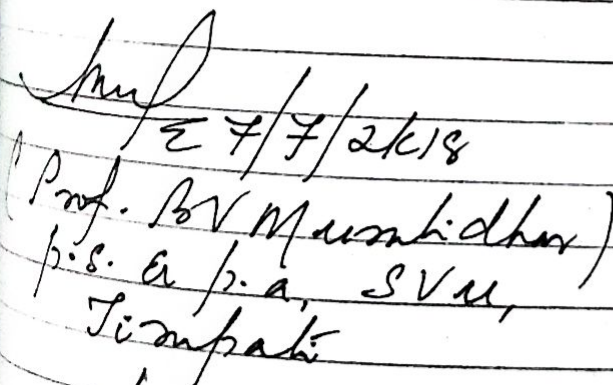 7/7/2k18
(Prof. BV Muralidhar)
p.s. & p.a, SVU,
Tirupati